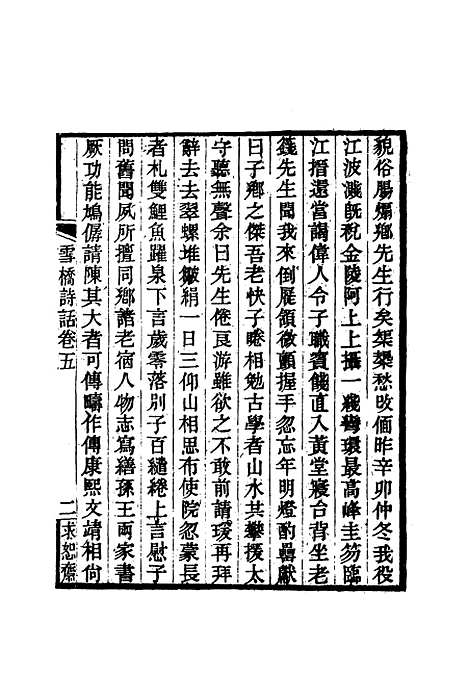 貌俗腸媚鄉先生行矣桀桀愁攺個昨辛卯仲冬我役
江波濺旣稅金陵阿上上攝一幾彎環最高峰圭笏臨
江搢還當謁偉人令子職賓餞直入黃堂寢台背坐老
錢先生聞我來倒屣領微顫握手忽忘年明燈酌罍獻
日子鄉之傑吾老快子睠相勉古學者山水其攀援太
守聽無聲余日先生倦良游雖欲之不敢前請瑗再拜
辭去去翠螺堆皺絹一日三仰山相思布使院忽蒙長
者札雙鯉魚躍泉下言歲零落別子百繾綣上言慰子
問舊聞夙所擅同鄉諸老宿人物志寫繕孫王兩家書
厥功能鳩僝請陳其大者可傳疇作傳康熙文靖相尙
雪橋詩話卷五
二
求恕齋